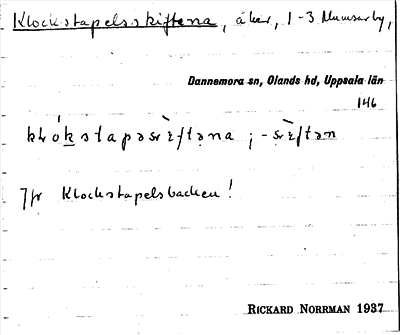 Klockstapelsskiftena, åker, 1-3 Mumsarby,
Dannemora sn, Olands hd, Uppsala län
146
Jfr Klockstapelsbacken!
RICKARD NORRMAN 1937